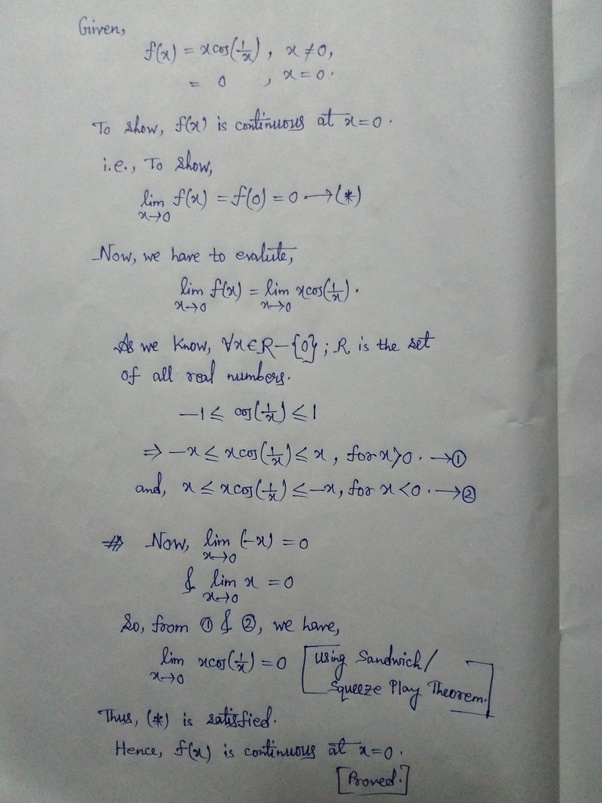 Given,
f(x) = xcos(1/x), x ≠ 0,
= 0 , x = 0.
To show, f(x) is continuous at x = 0.
i.e., To show,
lim x→0 f(x) = f(0) = 0 → (*)
Now, we have to evalute,
lim x→0 f(x) = lim x→0 xcos(1/x).
As we know, ∀x∈R-{0}; R is the set
of all real numbers.
-1 ≤ cos(1/x) ≤ 1
⇒ -x ≤ xcos(1/x) ≤ x, for x > 0. → ①
and, x ≤ xcos(1/x) ≤ -x, for x < 0. → ②
Now, lim x→0 (-x) = 0
& lim x→0 x = 0
So, from ① & ②, we have,
lim x→0 xcos(1/x) = 0 [Using Sandwich/
Squeeze Play Theorem.]
Thus, (*) is satisfied.
Hence, f(x) is continuous at x = 0.
[Proved.]